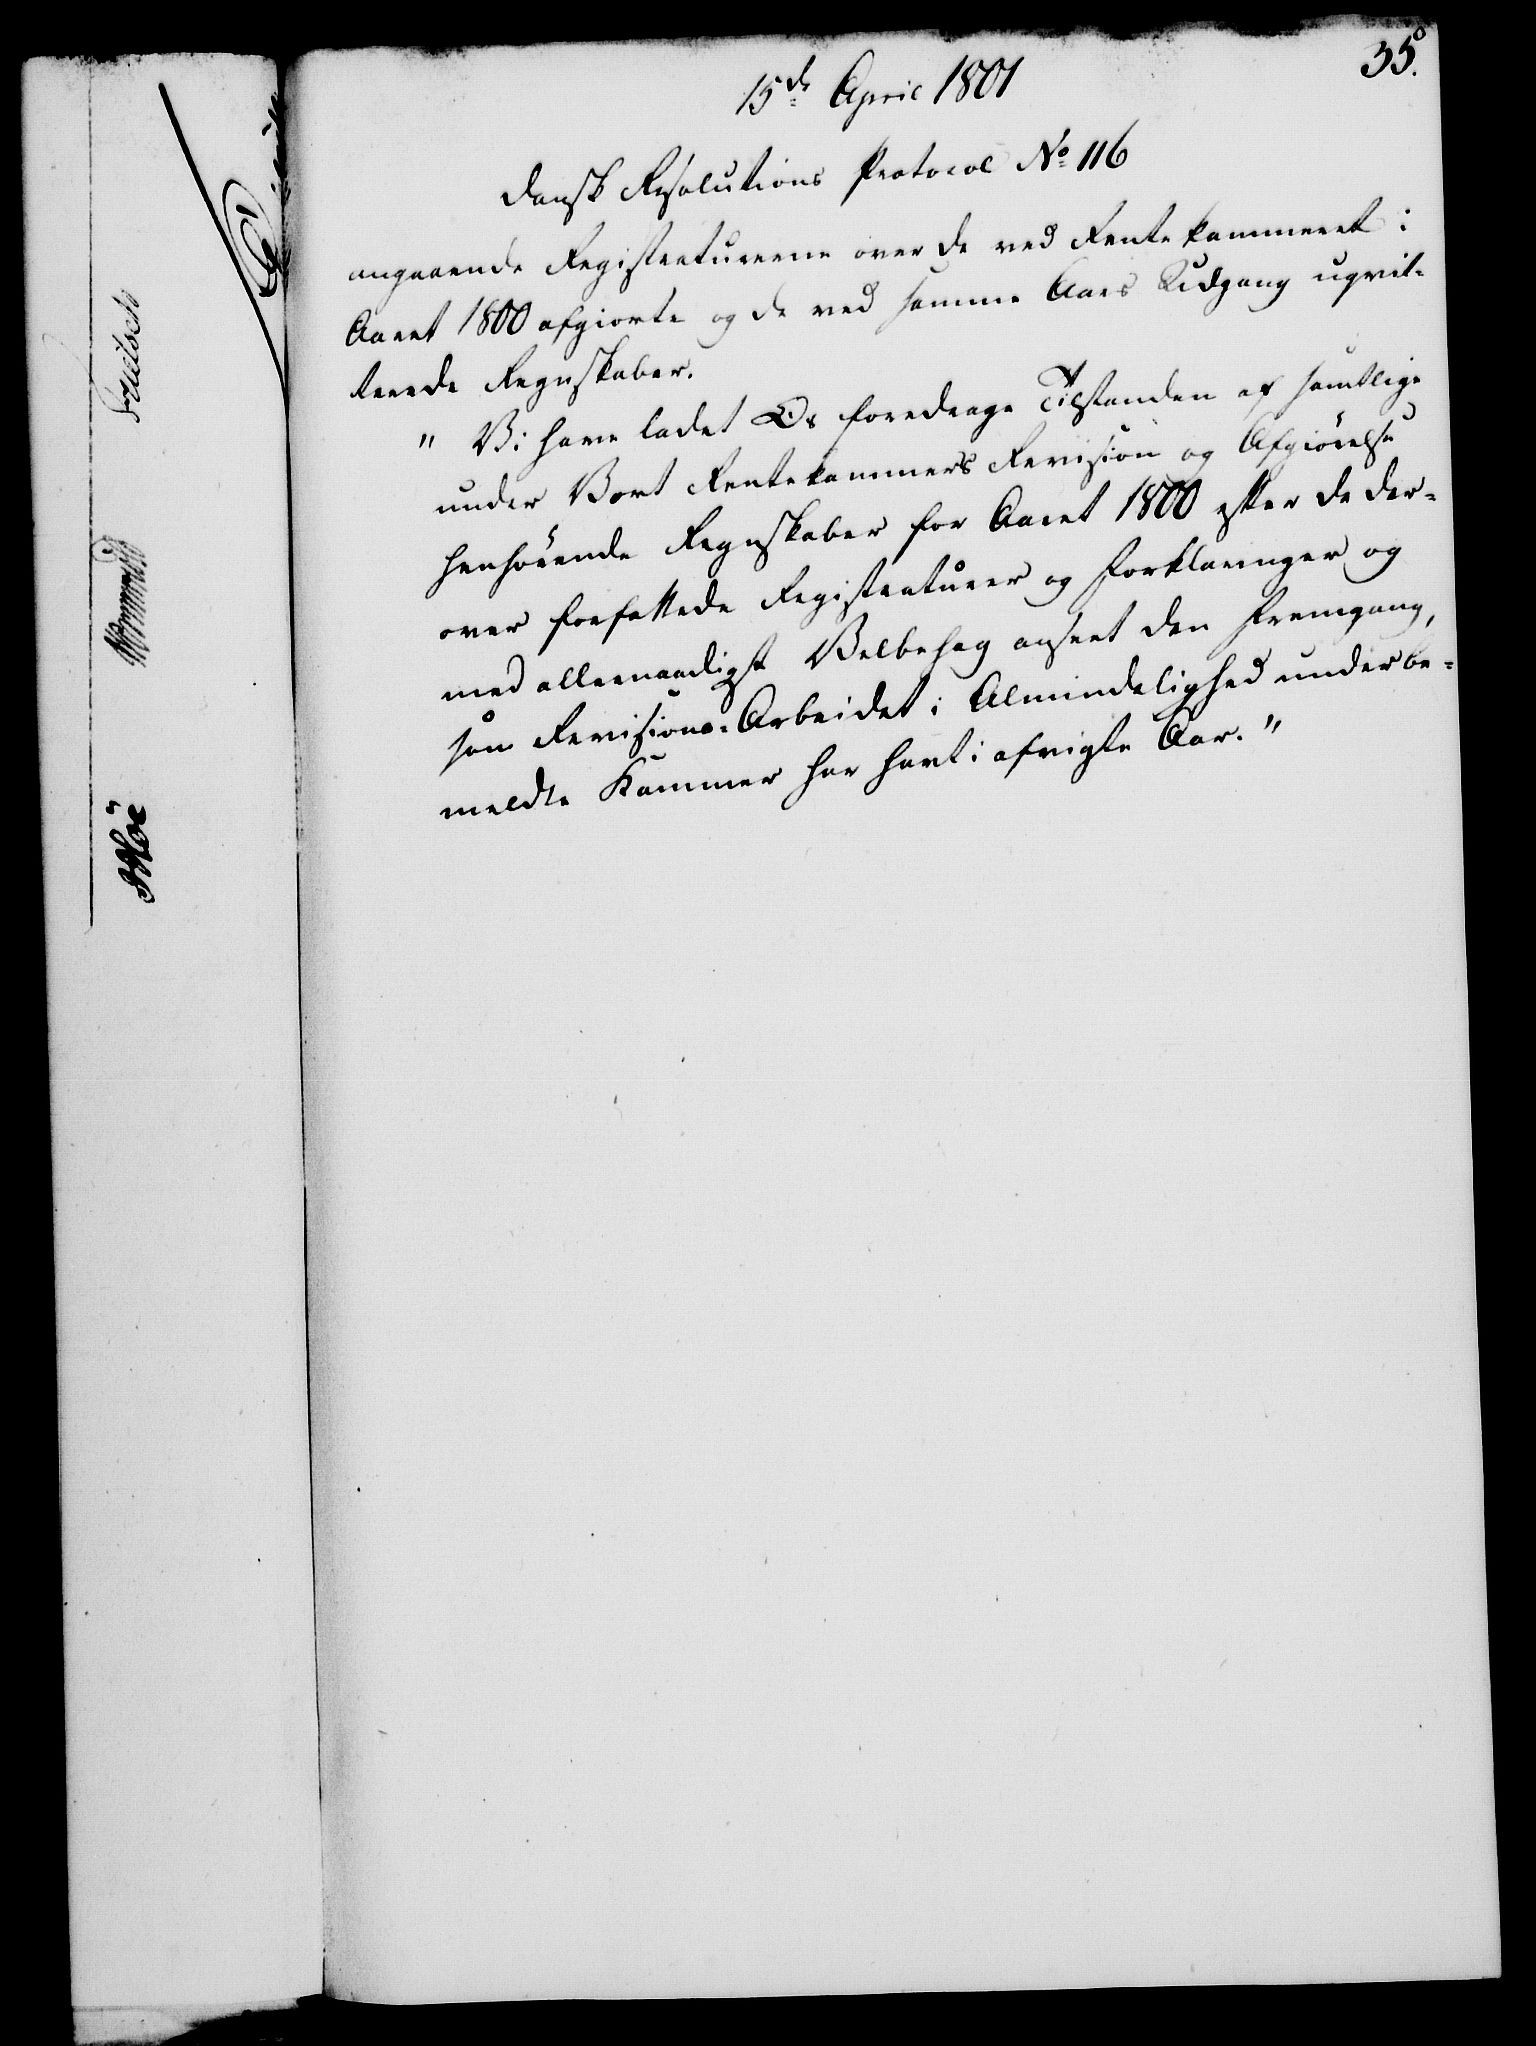 35.
15de April 1801
Dansk Resolutions Protocol No 116
angaaende Registraturerne over de ved Rentekammeret i
Aaret 1800 afgiorte og de ved samme Aars Udgang uqvit=
terede Regnskaber.
" Vi have ladet Os foredrage Tilstanden af samtlige
under Vort Rentekammers Revision og Afgiörelse
henhörende Regnskaber for Aaret 1800 efter de der=
over forfattede Registraturer og Forklaringer og
med allernaadigst Velbehag anseet den Fremgang,
som Revisions-Arbeidet i Almindelighed under be=
meldte Kammer har havt i afvigte Aar."